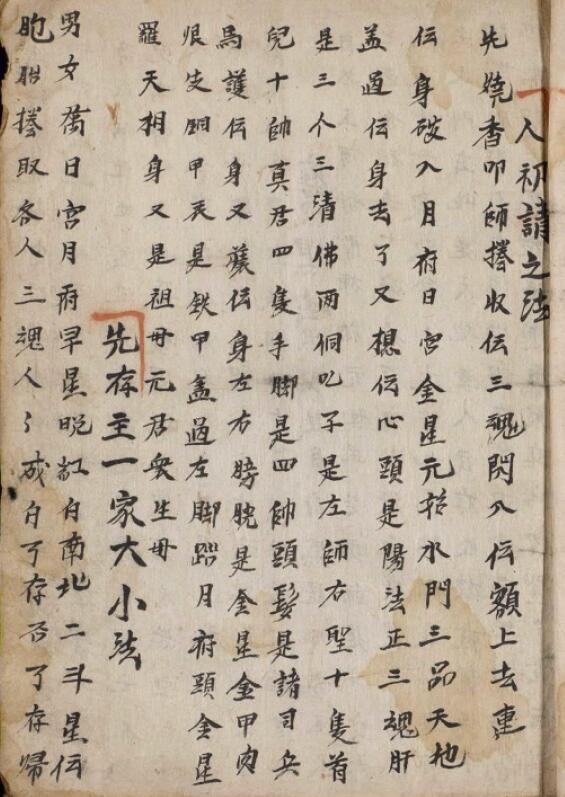 人初請之法
先燒香叩師捲收伝三魂閃入伝額上去連
伝身破入月府日宮金星元招水門三品天地
盖過伝身去了又想伝心頭是陽法正三魂肝
是三个三清佛两個吃子是左師右聖十隻首
兒十帥真君四隻手脚是四帥頭髮是諸司兵
馬護伝身又蔵伝身左右膀腕是金星金甲肉
根支銅甲衣是鉄甲盖過左脚踏月府頭金星
羅天相身又是祖母元君衆生母
先存主一家大小法
男女喬日宮月府早星晚缸白南北二斗星伝
胞胎捲取各人三魂人〻成白了存否了存歸